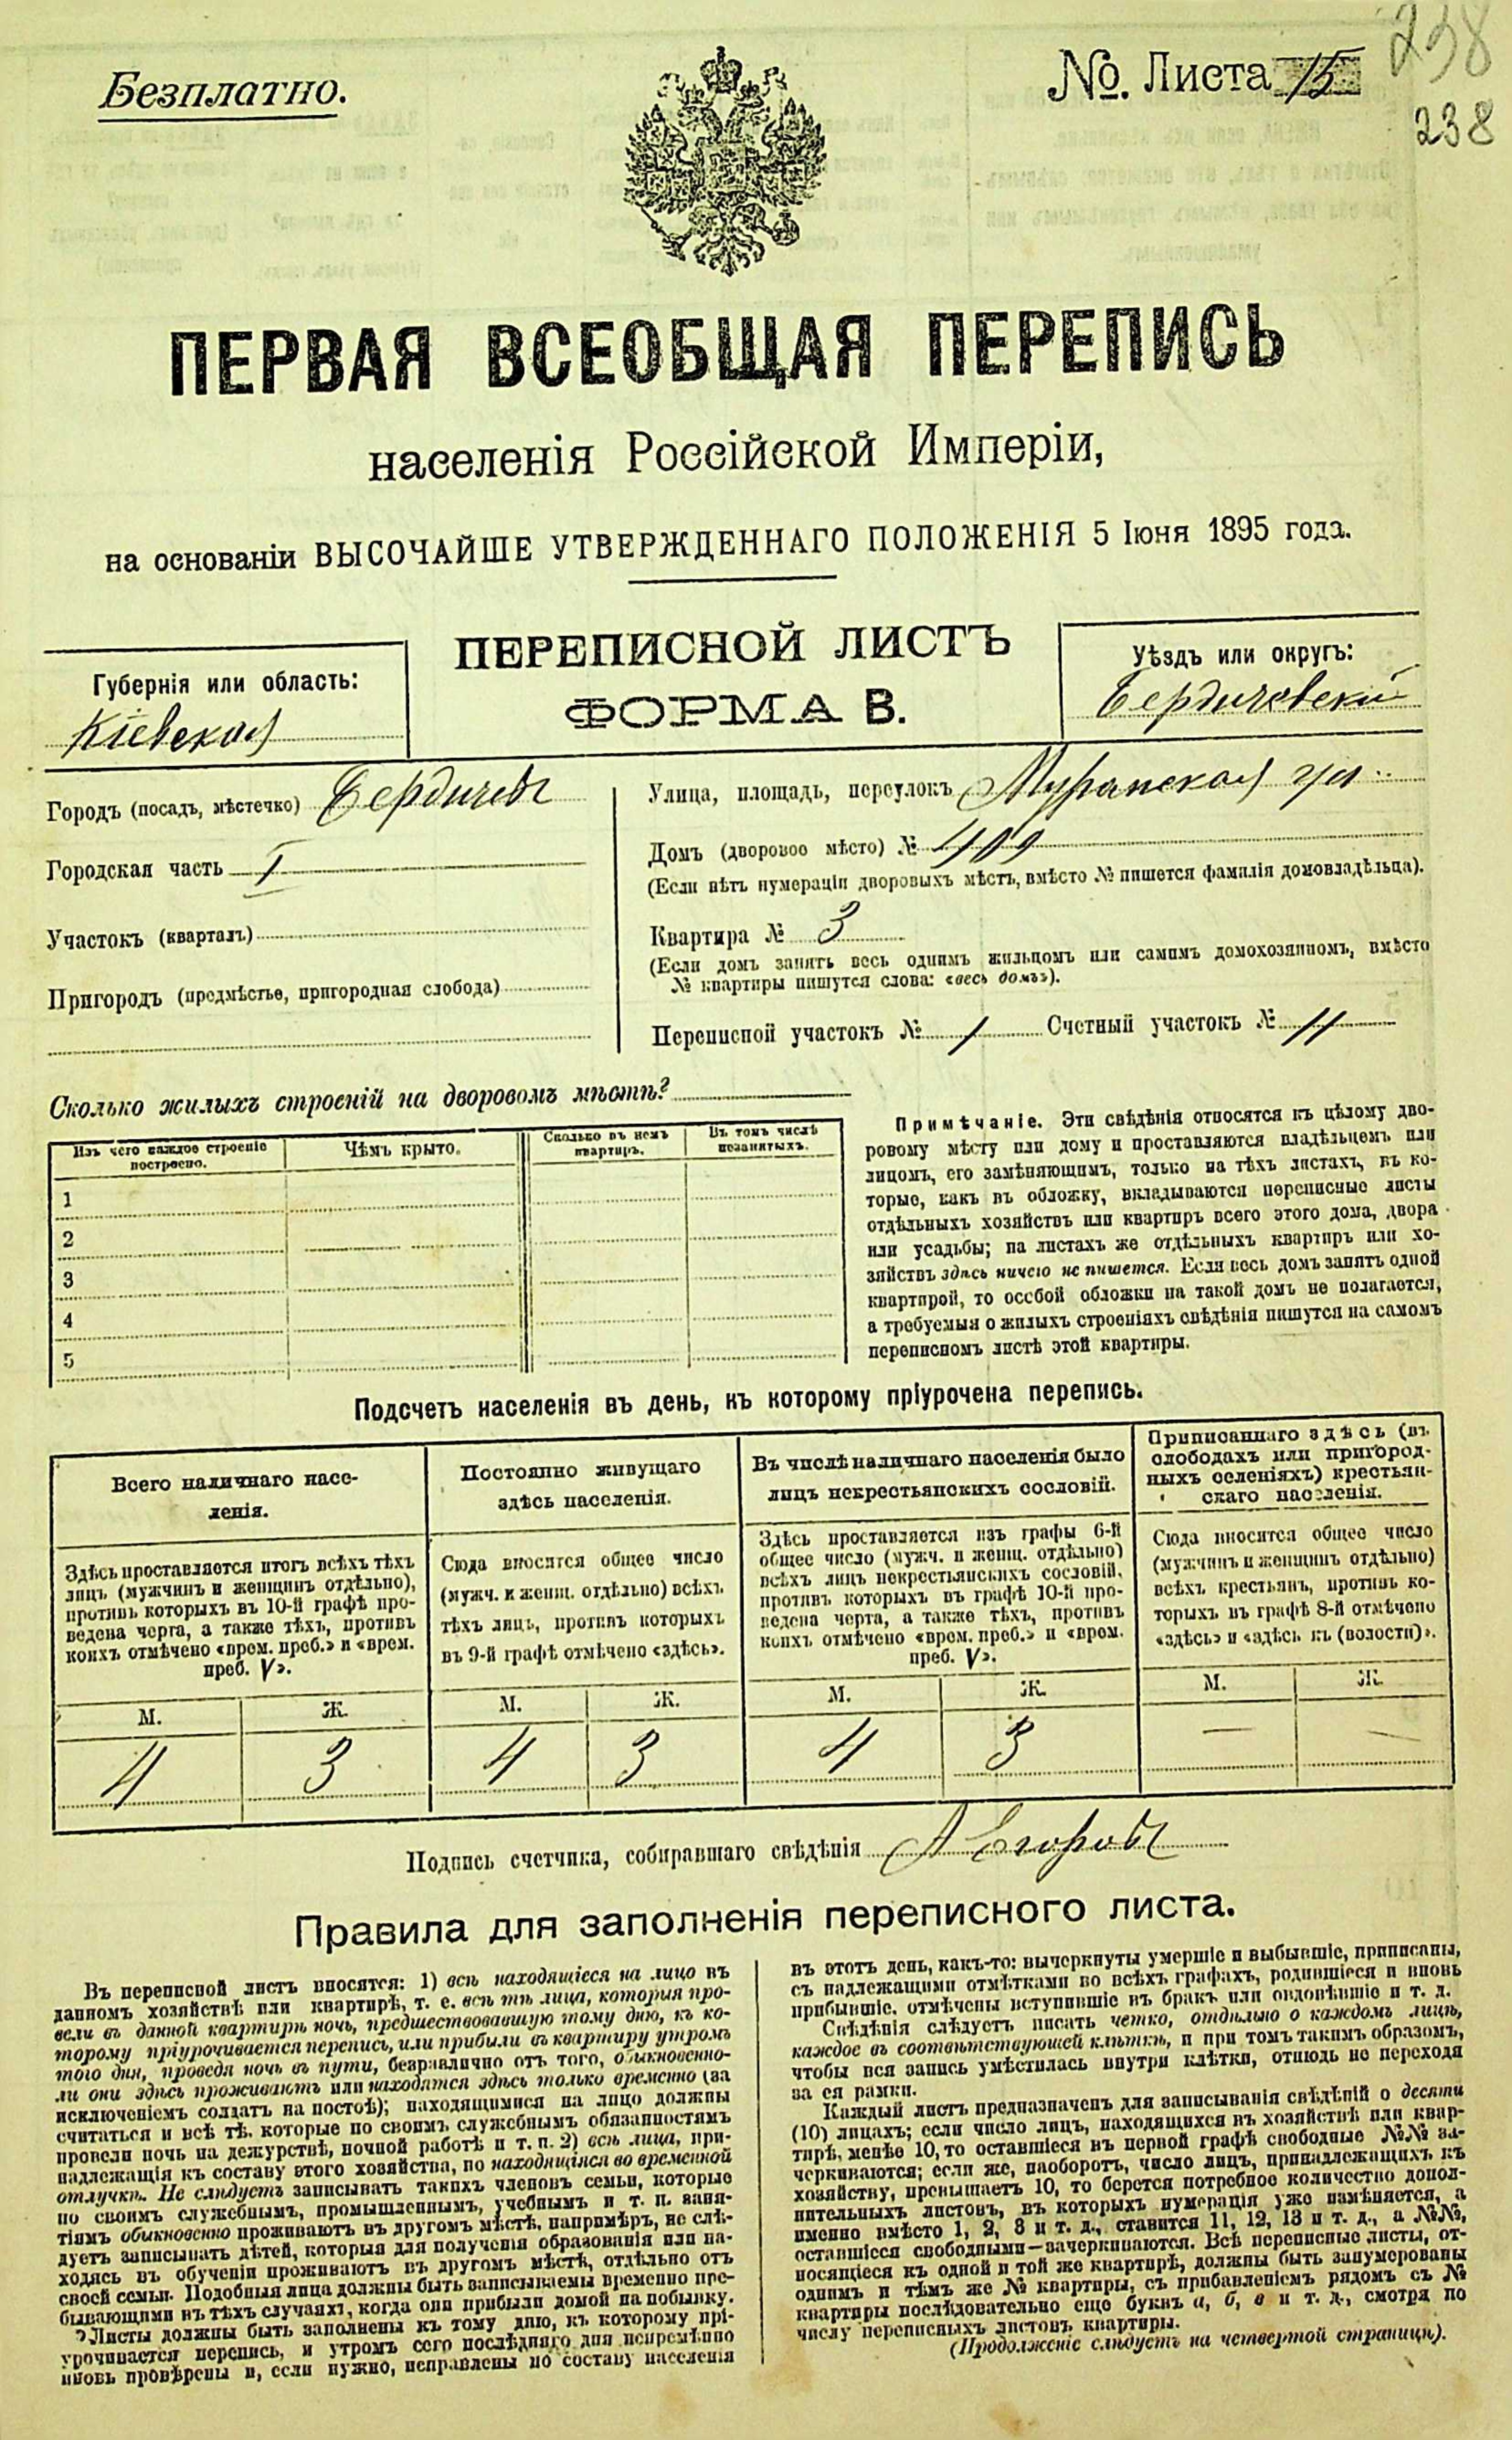 Безплатно.
№. Листа 15
238
238
ПЕРВАЯ ВСЕОБЩАЯ ПЕРЕПИСЬ
населенія Россійской Имперіи,
на основаніи ВЫСОЧАЙШЕ УТВЕРЖДЕННАГО ПОЛОЖЕНІЯ 5 Іюня 1895 года.
ПЕРЕПИСНОЙ ЛИСТЪ
ФОРМА В.
Губернія или область:
Кіевская
Уѣздъ или округъ:
Бердичевскій
Городъ (посадъ, мѣстечко) Бердичевъ
Городская часть I
Участокъ (кварталъ)
Пригородъ (предмѣстье, пригородная слобода)
Улица, площадь, переулокъ ул.
Домъ (дворовое мѣсто) № 409
(Если нѣтъ нумераціи дворовыхъ мѣстъ, вмѣсто № пишется фамилія домовладѣльца).
Квартира № 3
(Если домъ занятъ весь однимъ жильцомъ или самимъ домохозяиномъ, вмѣсто
№ квартиры пишутся слова: «весь домъ»).
Переписной участокъ № 1 Счетный участокъ № 11
Сколько жилыхъ строеній на дворовомъ мѣстѣ?
Изъ чего каждое строеніе
построено.
Чѣмъ крыто.
Сколько въ немъ
квартиръ.
Въ томъ числѣ
незанятыхъ.
1
2
3
4
5
Примѣчаніе. Эти свѣдѣнія относятся къ цѣлому дво-
ровому мѣсту или дому и проставляются владѣльцемъ или
лицомъ, его замѣняющимъ, только на тѣхъ листахъ, въ ко-
торые, какъ въ обложку, вкладываются переписные листы
отдѣльныхъ хозяйствъ или квартиръ всего этого дома, двора
или усадьбы; на листахъ же отдѣльныхъ квартиръ или хо-
зяйствъ здѣсь ничего не пишется. Если весь домъ занятъ одной
квартирой, то особой обложки на такой домъ не полагается,
а требуемыя о жилыхъ строеніяхъ свѣдѣнія пишутся на самомъ
переписномъ листѣ этой квартиры.
Подсчетъ населенія въ день, къ которому пріурочена перепись.
Всего наличнаго насе-
ленія.
Постоянно живущаго
здѣсь населенія.
Въ числѣ наличнаго населенія было
лицъ некрестьянскихъ сословій.
Приписаннаго здѣсь (въ
слободахъ или пригород-
ныхъ селеніяхъ) крестьян-
скаго населенія.
Здѣсь проставляется итогъ всѣхъ тѣхъ
лицъ (мужчинъ и женщинъ отдѣльно),
противъ которыхъ въ 10-й графѣ про-
ведена черта, а также тѣхъ, противъ
коихъ отмѣчено «врем. преб.» и «врем.
преб. V».
Сюда вносится общее число
(мужч. и женщ. отдѣльно) всѣхъ
тѣхъ лицъ, противъ которыхъ
въ 9-й графѣ отмѣчено «здѣсь».
Здѣсь проставляется изъ графы 6-й
общее число (мужч. и женщ. отдѣльно)
всѣхъ лицъ некрестьянскихъ сословій,
противъ которыхъ въ графѣ 10-й про-
ведена черта, а также тѣхъ, противъ
коихъ отмѣчено «врем. преб.» и «врем.
преб. V».
Сюда вносится общее число
(мужчинъ и женщинъ отдѣльно)
всѣхъ крестьянъ, противъ ко-
торыхъ въ графѣ 8-й отмѣчено
«здѣсь» и «здѣсь къ (волости)».
М. Ж. М. Ж. М. Ж. М. Ж.
4 3 4 3 4 3 — —
Подпись счетчика, собиравшаго свѣдѣнія А Егоровъ
Правила для заполненія переписного листа.
Въ переписной листъ вносятся: 1) всѣ находящіеся на лицо въ
данномъ хозяйствѣ или квартирѣ, т. е. всѣ тѣ лица, которыя про-
вели въ данной квартирѣ ночь, предшествовавшую тому дню, къ ко-
торому пріурочивается перепись, или прибыли въ квартиру утромъ
того дня, проведя ночь въ пути, безразлично отъ того, обыкновенно-
ли они здѣсь проживаютъ или находятся здѣсь только временно (за
исключеніемъ солдатъ на постоѣ); находящимися на лицо должны
считаться и всѣ тѣ, которые по своимъ служебнымъ обязанностямъ
провели ночь на дежурствѣ, ночной работѣ и т. п. 2) всѣ лица, при-
надлежащія къ составу этого хозяйства, но находящіяся во временной
отлучкѣ. Не слѣдуетъ записывать такихъ членовъ семьи, которые
по своимъ служебнымъ, промышленнымъ, учебнымъ и т. п. заня-
тіямъ обыкновенно проживаютъ въ другомъ мѣстѣ, напримѣръ, не слѣ-
дуетъ записывать дѣтей, которыя для полученія образованія или на-
ходясь въ обученіи проживаютъ въ другомъ мѣстѣ, отдѣльно отъ
своей семьи. Подобныя лица должны быть записываемы временно пре-
бывающими въ тѣхъ случаяхъ, когда они прибыли домой на побывку.
Листы должны быть заполнены къ тому дню, къ которому прі-
урочивается перепись, и утромъ сего послѣдняго дня непремѣнно
вновь провѣрены и, если нужно, исправлены по составу населенія
въ этотъ день, какъ-то: вычеркнуты умершіе и выбывшіе, приписаны,
съ надлежащими отмѣтками во всѣхъ графахъ, родившіеся и вновь
прибывшіе, отмѣчены вступившіе въ бракъ или овдовѣвшіе и т. д.
Свѣдѣнія слѣдуетъ писать четко, отдѣльно о каждомъ лицѣ,
каждое въ соотвѣтствующей клѣткѣ, и при томъ такимъ образомъ,
чтобы вся запись умѣстилась внутри клѣтки, отнюдь не переходя
за ея рамки.
Каждый листъ предназначенъ для записыванія свѣдѣній о десяти
(10) лицахъ; если число лицъ, находящихся въ хозяйствѣ или квар-
тирѣ, менѣе 10, то оставшіеся въ первой графѣ свободные №№ за-
черкиваются; если же, наоборотъ, число лицъ, принадлежащихъ къ
хозяйству, превышаетъ 10, то берется потребное количество допол-
нительныхъ листовъ, въ которыхъ нумерація уже измѣняется, а
именно вмѣсто 1, 2, 3 и т. д., ставится 11, 12, 13 и т. д., а №№,
оставшіеся свободными—зачеркиваются. Всѣ переписные листы, от-
носящіеся къ одной и той же квартирѣ, должны быть занумерованы
однимъ и тѣмъ же № квартиры, съ прибавленіемъ рядомъ съ №
квартиры послѣдовательно еще буквъ а, б, в и т. д., смотря по
числу переписныхъ листовъ квартиры.
(Продолженіе слѣдуетъ на четвертой страницѣ).